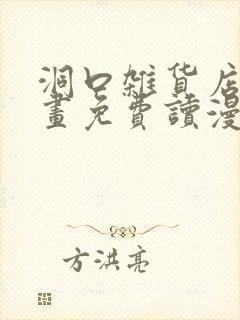 洞口雜貨店
畫免費讀漫
方洪亮